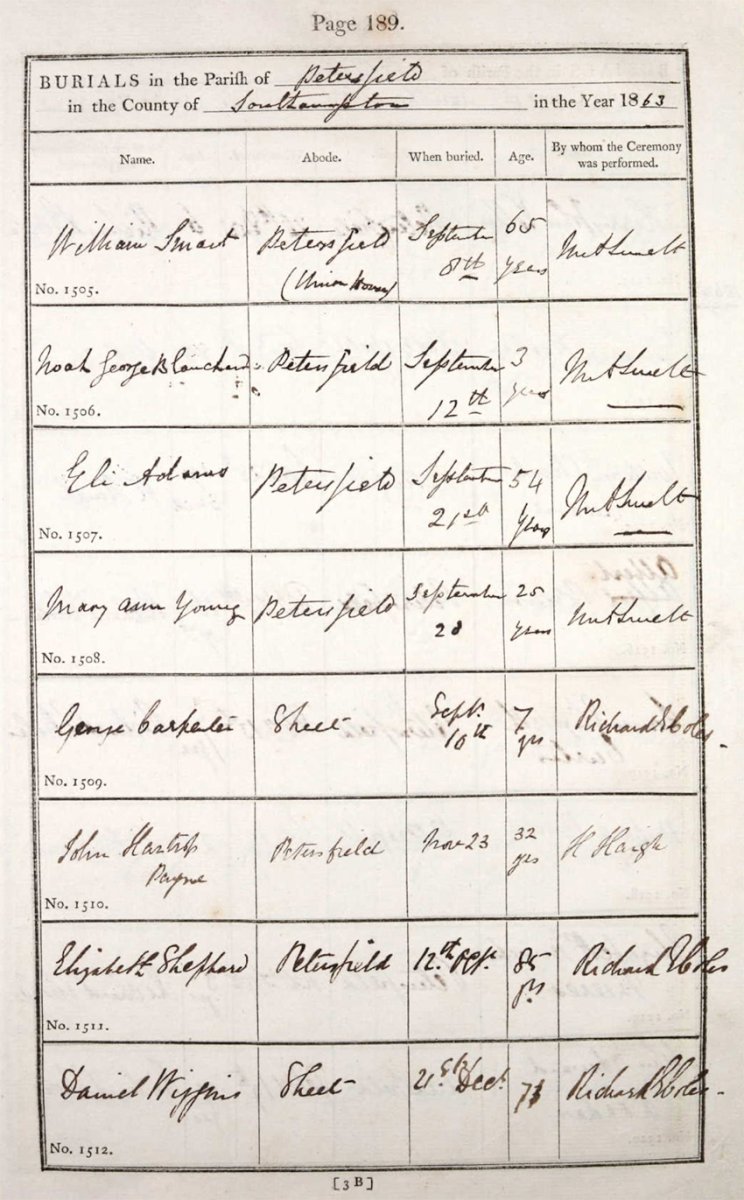 Page 189.
BURIALS in the Parish of Petersfield
in the County of Southampton in the Year 1863
Name. Abode. When buried. Age. By whom the Ceremony was performed.
William Smart Petersfield September 65
(Union House) 8th years
No. 1505.
Noah George Blanchard Petersfield September 3
12th years
No. 1506.
Eli Adams Petersfield September 54
21st years
No. 1507.
Mary Ann Young Petersfield September 25
28 years
No. 1508.
George Carpenter Sheet Sept. 7 Richard E Coles
10th yrs
No. 1509.
John Payne Petersfield Nov 23 32 H Haigh
yrs
No. 1510.
Elizabeth Shephard Petersfield 12th 85 Richard E Coles
yrs
No. 1511.
Daniel Wiggins Sheet 21st Dec. Richard E Coles
No. 1512.
[3B]